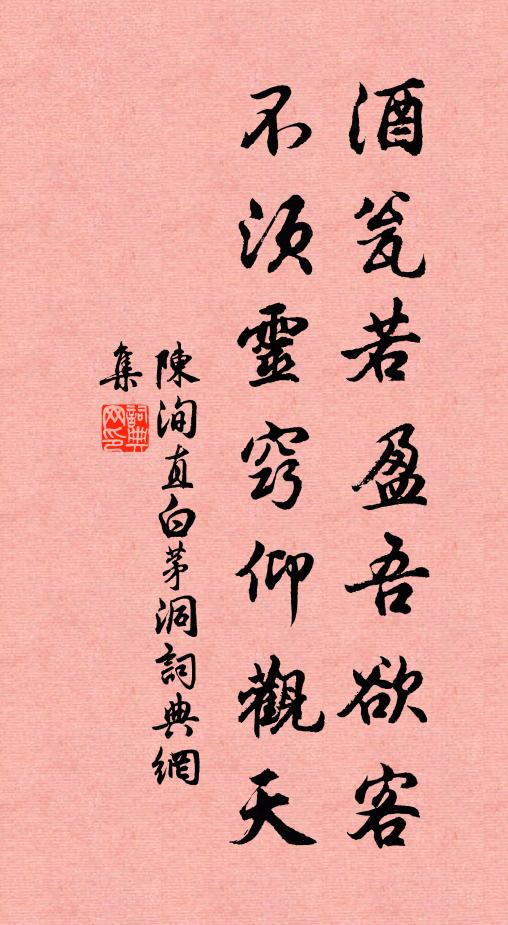 酒瓮若盈吾欲客
不須靈窍仰觀天
陳洵直白茅洞詞典網
集
詞典网印